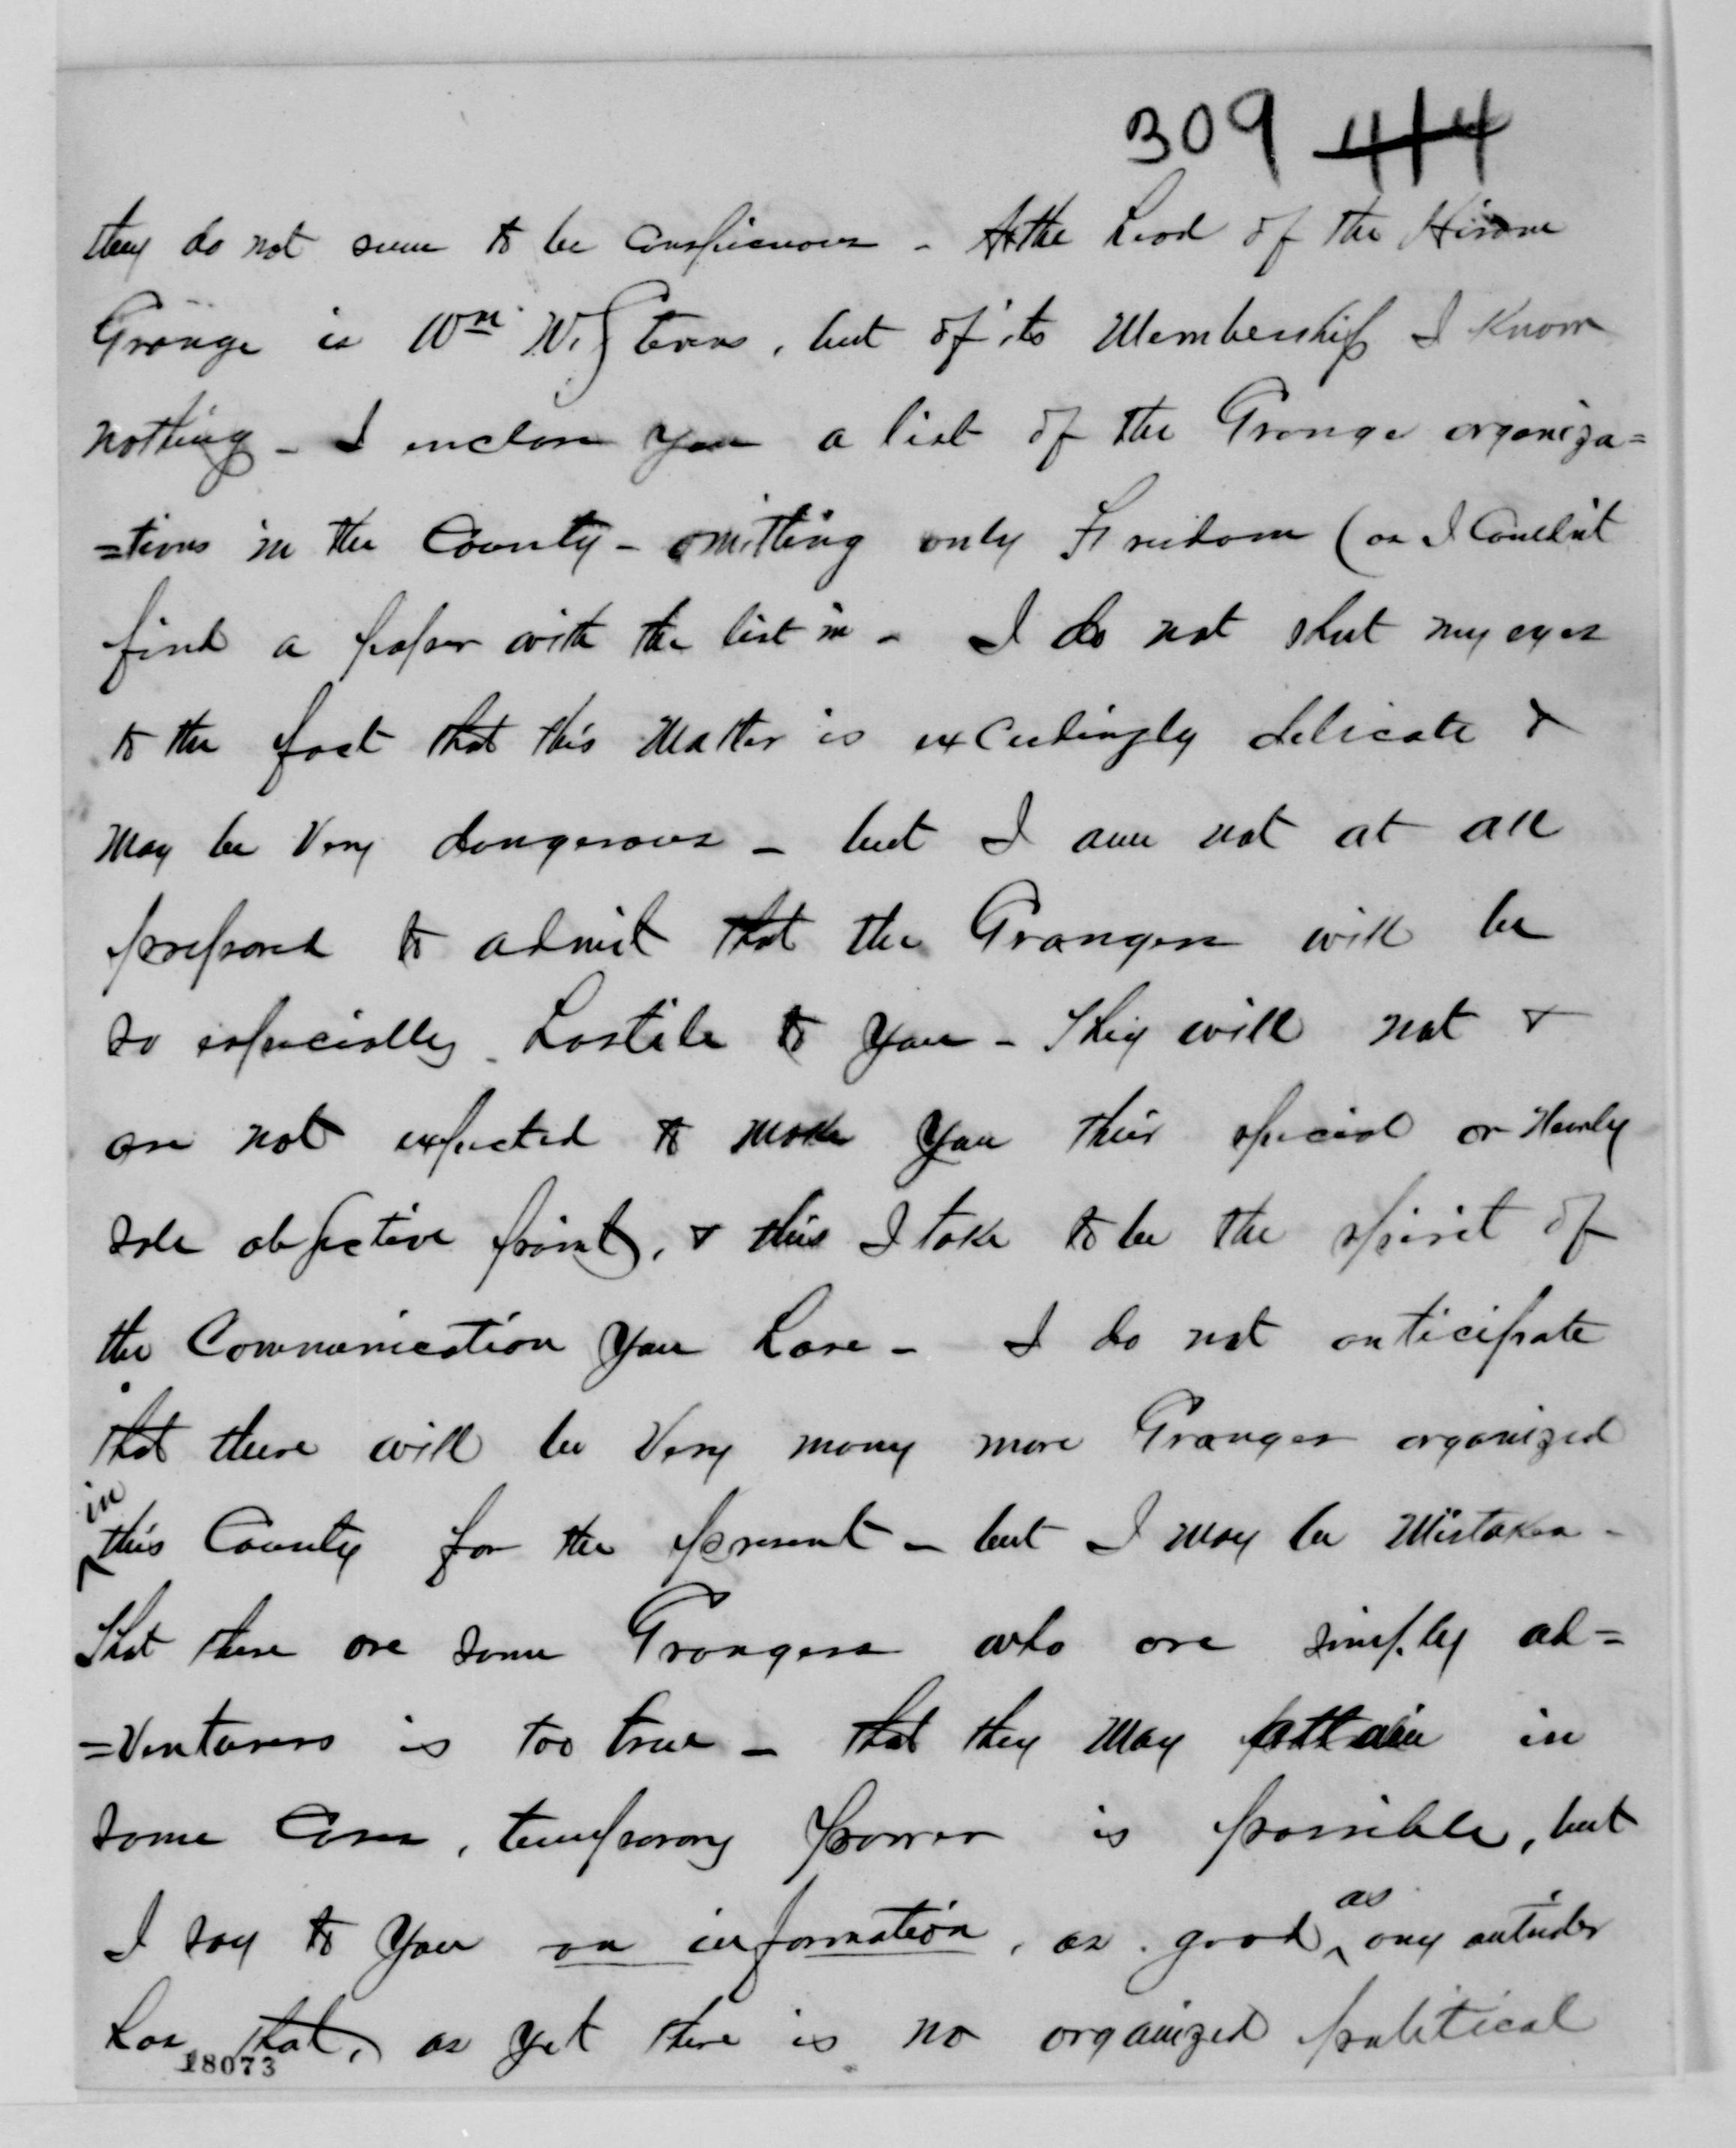 309 414
they do not seem to be conspicuous - At the head of the Hiram
Grange is Wm W. Stevens, but of its Membership I know
nothing - I enclose you a list of the Grange organiza=
=tions in the County - omitting only Freedom (as I Couldn't
find a paper with the list in - I do not shut my eyes
to the fact that this Matter is exceedingly delicate &
May be Very dangerous - but I am not at all
prepared to admit that the Grangers will be
so especially hostile to you - They will not &
are not expected to make you their special or Nearly
sole objective point, & this I take to be the spirit of
the Communication you have - I do not anticipate
that there will be Very many more Granges organized
in this County for the present - but I may be Mistaken -
That there are some Grangers who are simply ad=
=Venturers is too true - that they May attain in
some Cases, temporary power is possible, but
I say to you on information, as good as any outsider
has that, as yet there is no organized political
18073